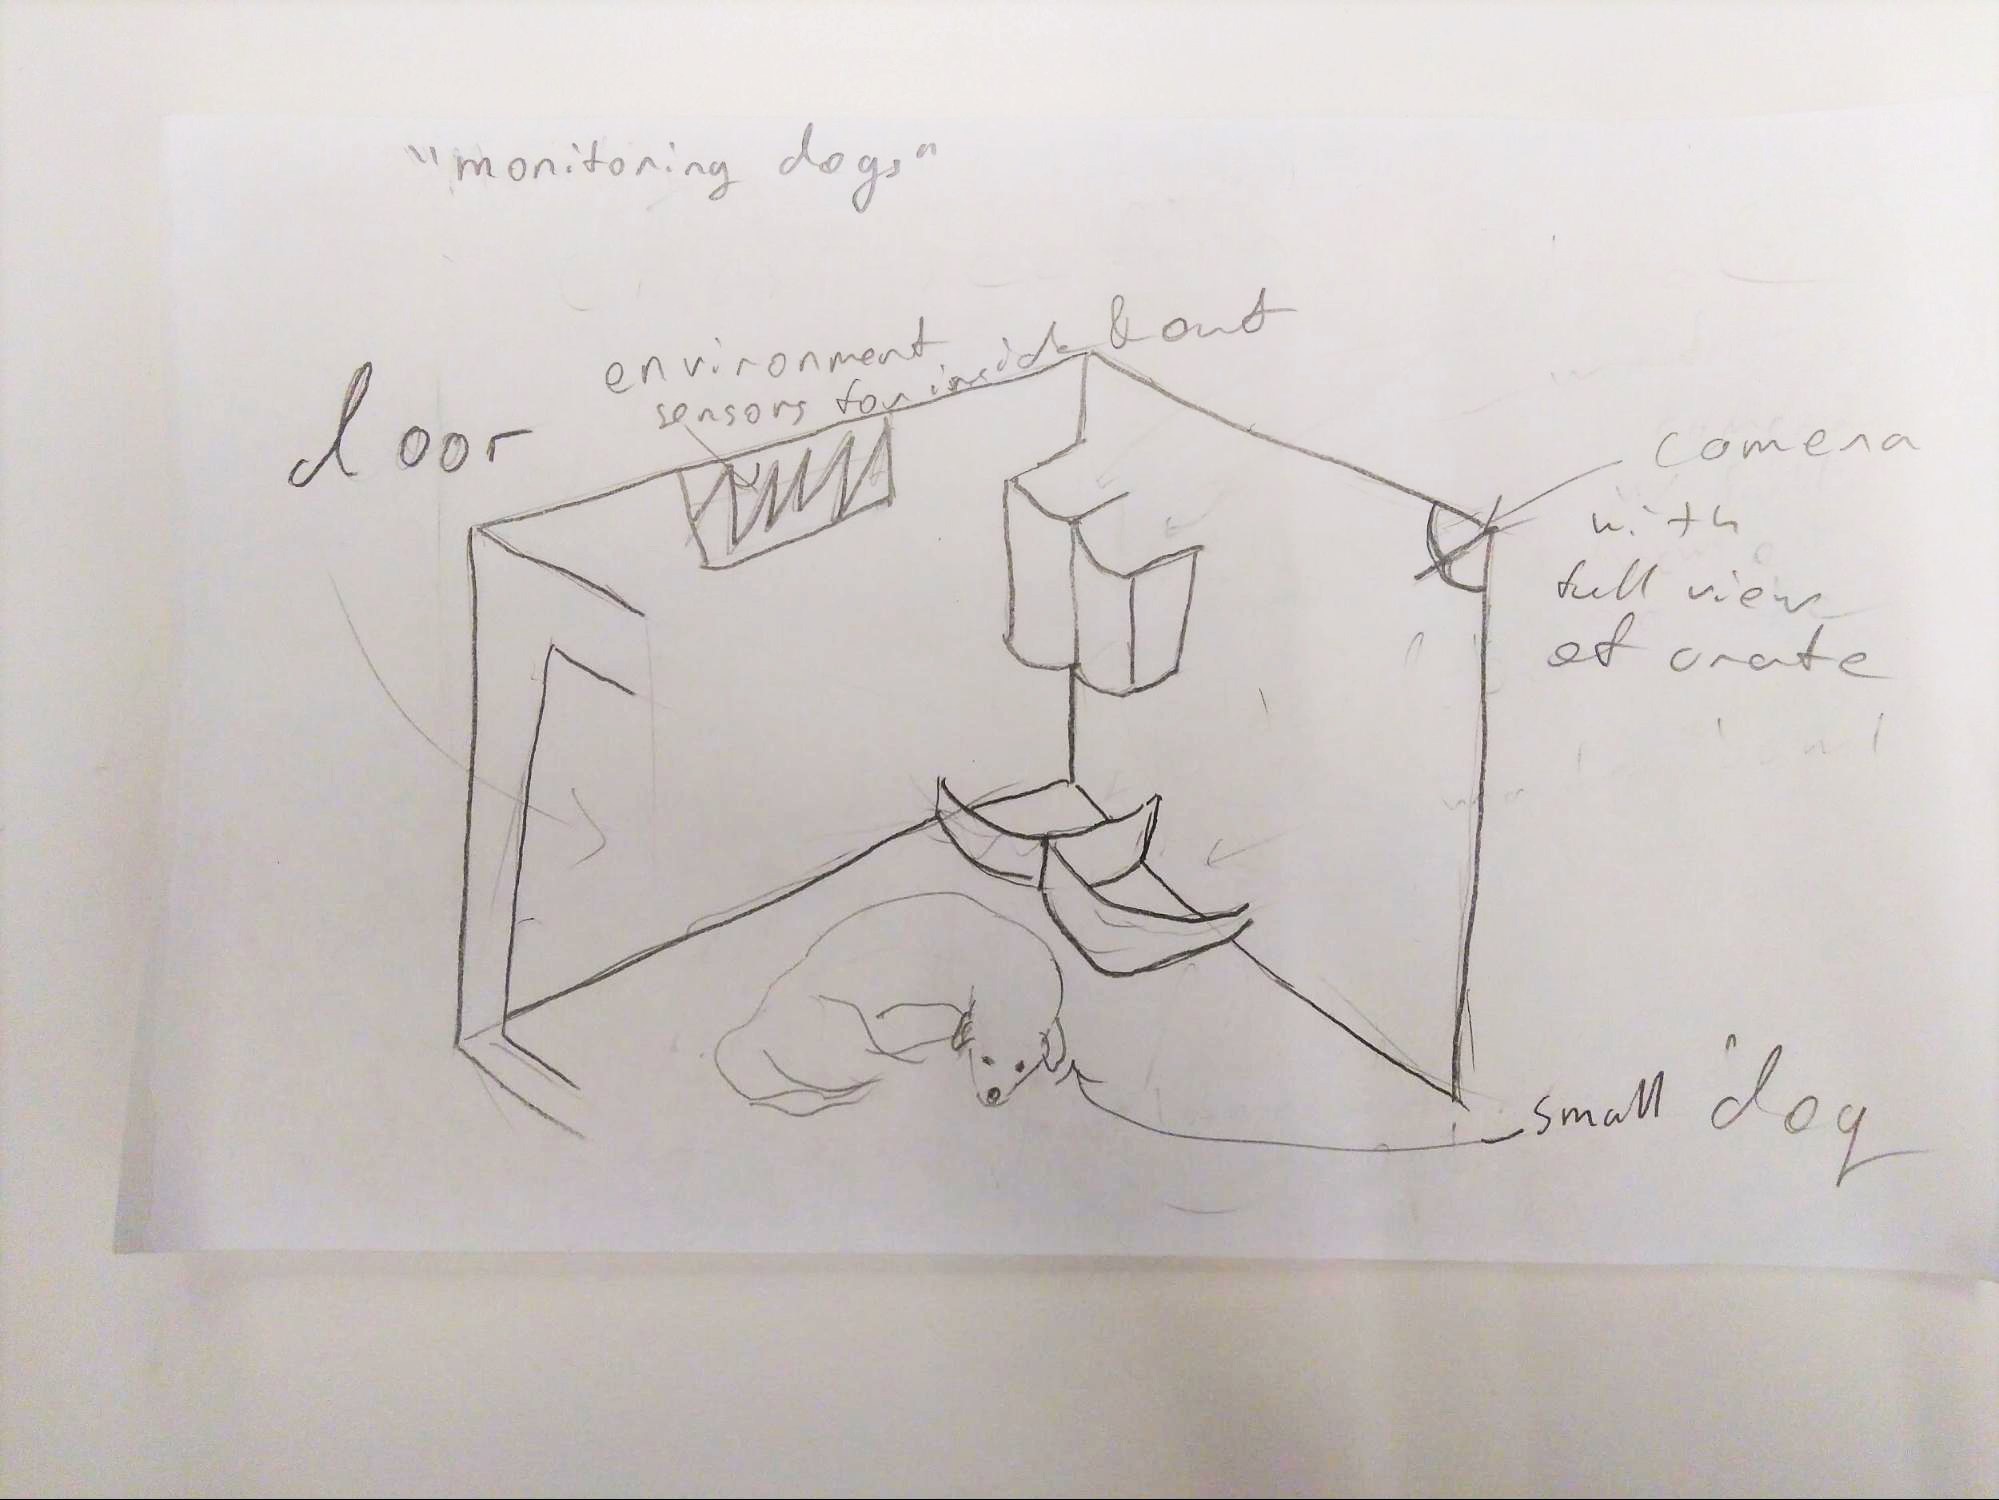 "monitoring dogs"
environment
sensors for inside & out
door
camera
with
full view
of crate
small dog